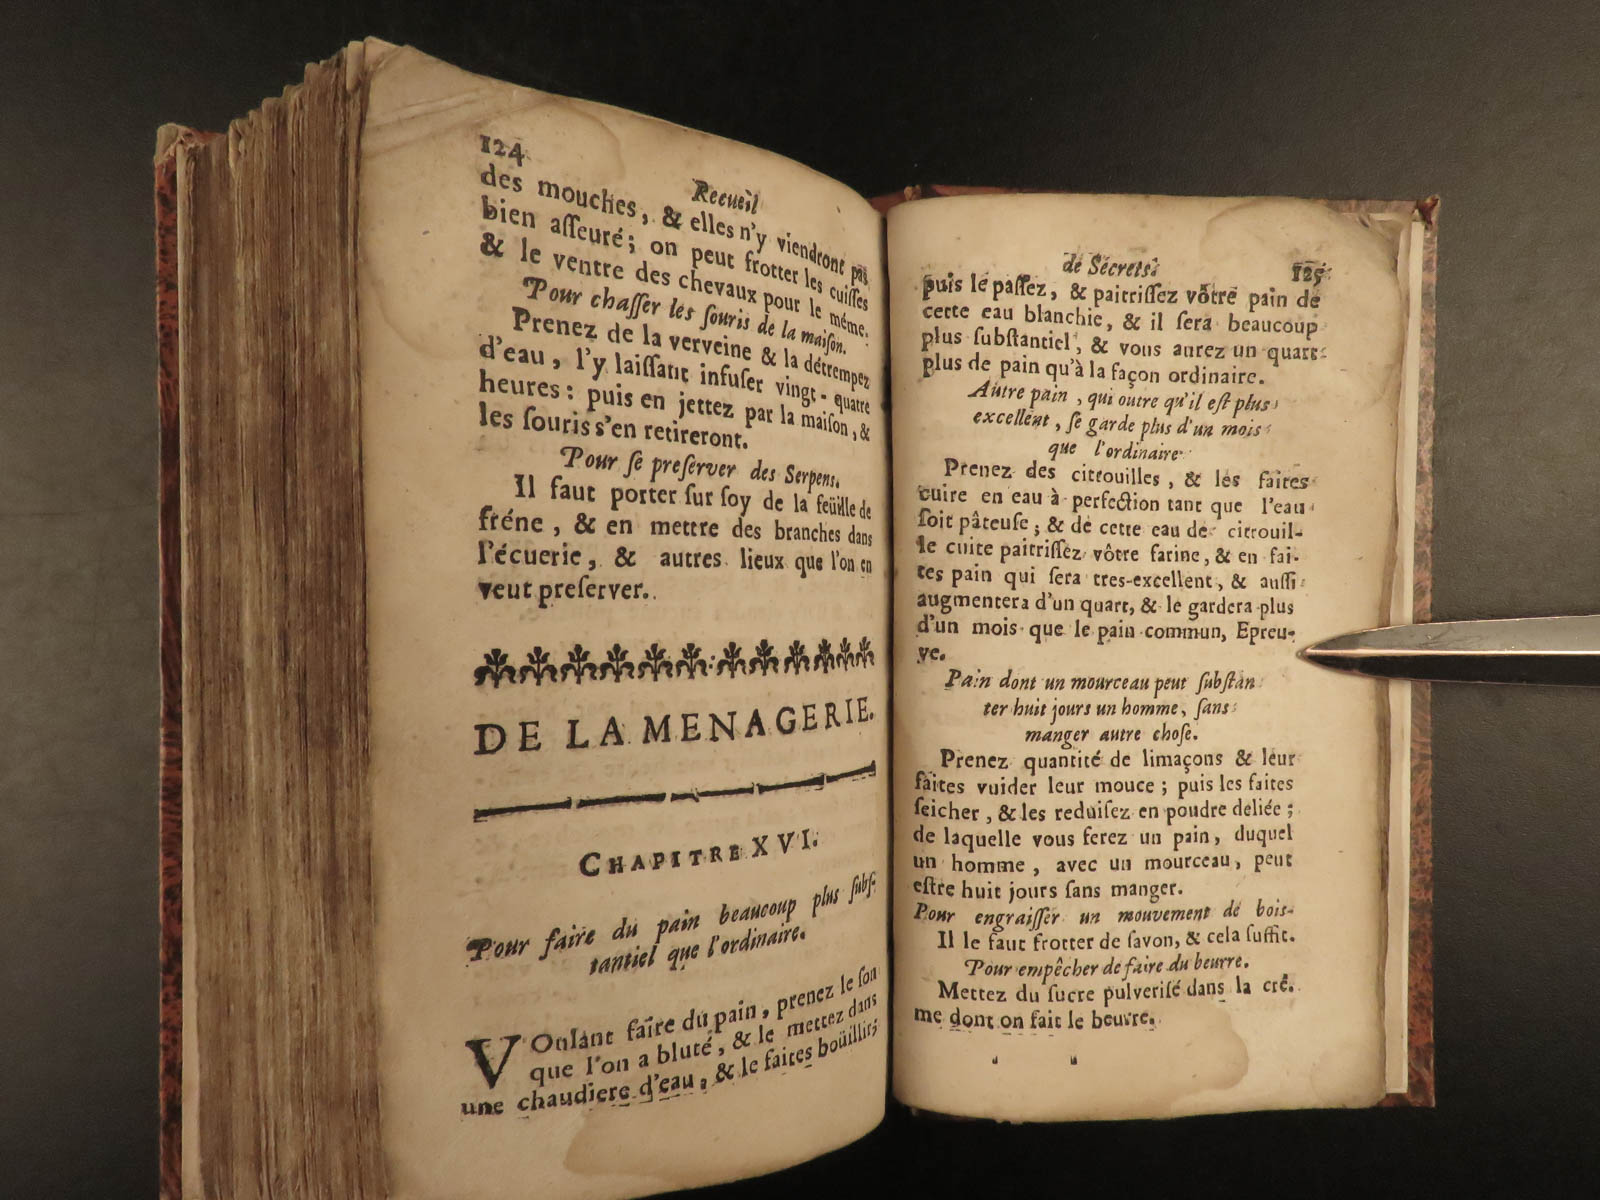 124
Recueil
des mouches, & elles n'y viendront pas
bien aſſeuré; on peut frotter les cuiſſes
& le ventre des chevaux pour le même.
Pour chaſſer les ſouris de la maiſon.
Prenez de la verveine & la détrempez
d'eau, l'y laiſſant infuſer vingt-quatre
heures: puis en jettez par la maiſon, &
les ſouris s'en retireront.
Pour ſe preſerver des Serpens.
Il faut porter ſur ſoy de la feüille de
fréne, & en mettre des branches dans
l'écuerie, & autres lieux que l'on en
veut preſerver.
DE LA MENAGERIE.
CHAPITRE XVI.
Pour faire du pain beaucoup plus ſubſ-
tantiel que l'ordinaire.
VOulant faire du pain, prenez le ſon
que l'on a bluté, & le mettez dans
une chaudiere d'eau, & le faites boüillir;
de Secrets.
125
puis le paſſez, & paitriſſez vôtre pain de
cette eau blanchie, & il ſera beaucoup
plus ſubſtantiel, & vous aurez un quart
plus de pain qu'à la façon ordinaire.
Autre pain, qui outre qu'il eſt plus
excellent, ſe garde plus d'un mois
que l'ordinaire
Prenez des citrouilles, & les faites
cuire en eau à perfection tant que l'eau
ſoit pâteuſe; & de cette eau de citrouil-
le cuite paitriſſez vôtre farine, & en fai-
tes pain qui ſera tres-excellent, & auſſi
augmentera d'un quart, & le gardera plus
d'un mois que le pain commun, Epreu-
ve.
Pain dont un mourceau peut ſubſtan
ter huit jours un homme, ſans
manger autre choſe.
Prenez quantité de limaçons & leur
faites vuider leur mouce; puis les faites
ſeicher, & les reduiſez en poudre deliée;
de laquelle vous ferez un pain, duquel
un homme, avec un mourceau, peut
eſtre huit jours ſans manger.
Pour engraiſſer un mouvement de bois-
Il le faut frotter de ſavon, & cela ſuffit.
Pour empêcher de faire du beurre.
Mettez du ſucre pulveriſé dans la cré-
me dont on fait le beurre.